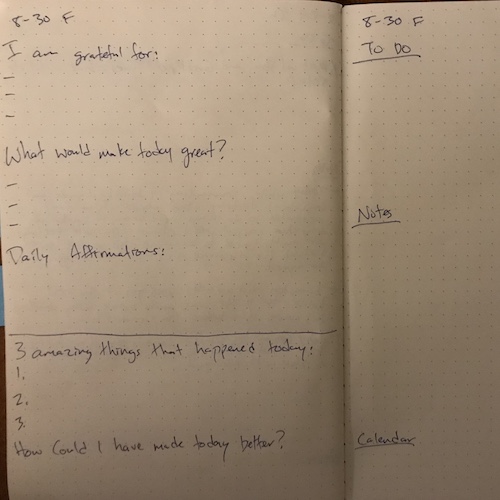 8-30 F
I am grateful for:
-
-
-
What would make today great?
-
-
-
Daily Affirmations:
3 amazing things that happened today:
1.
2.
3.
How Could I have made today better?
8-30 F
To Do
Notes
Calendar